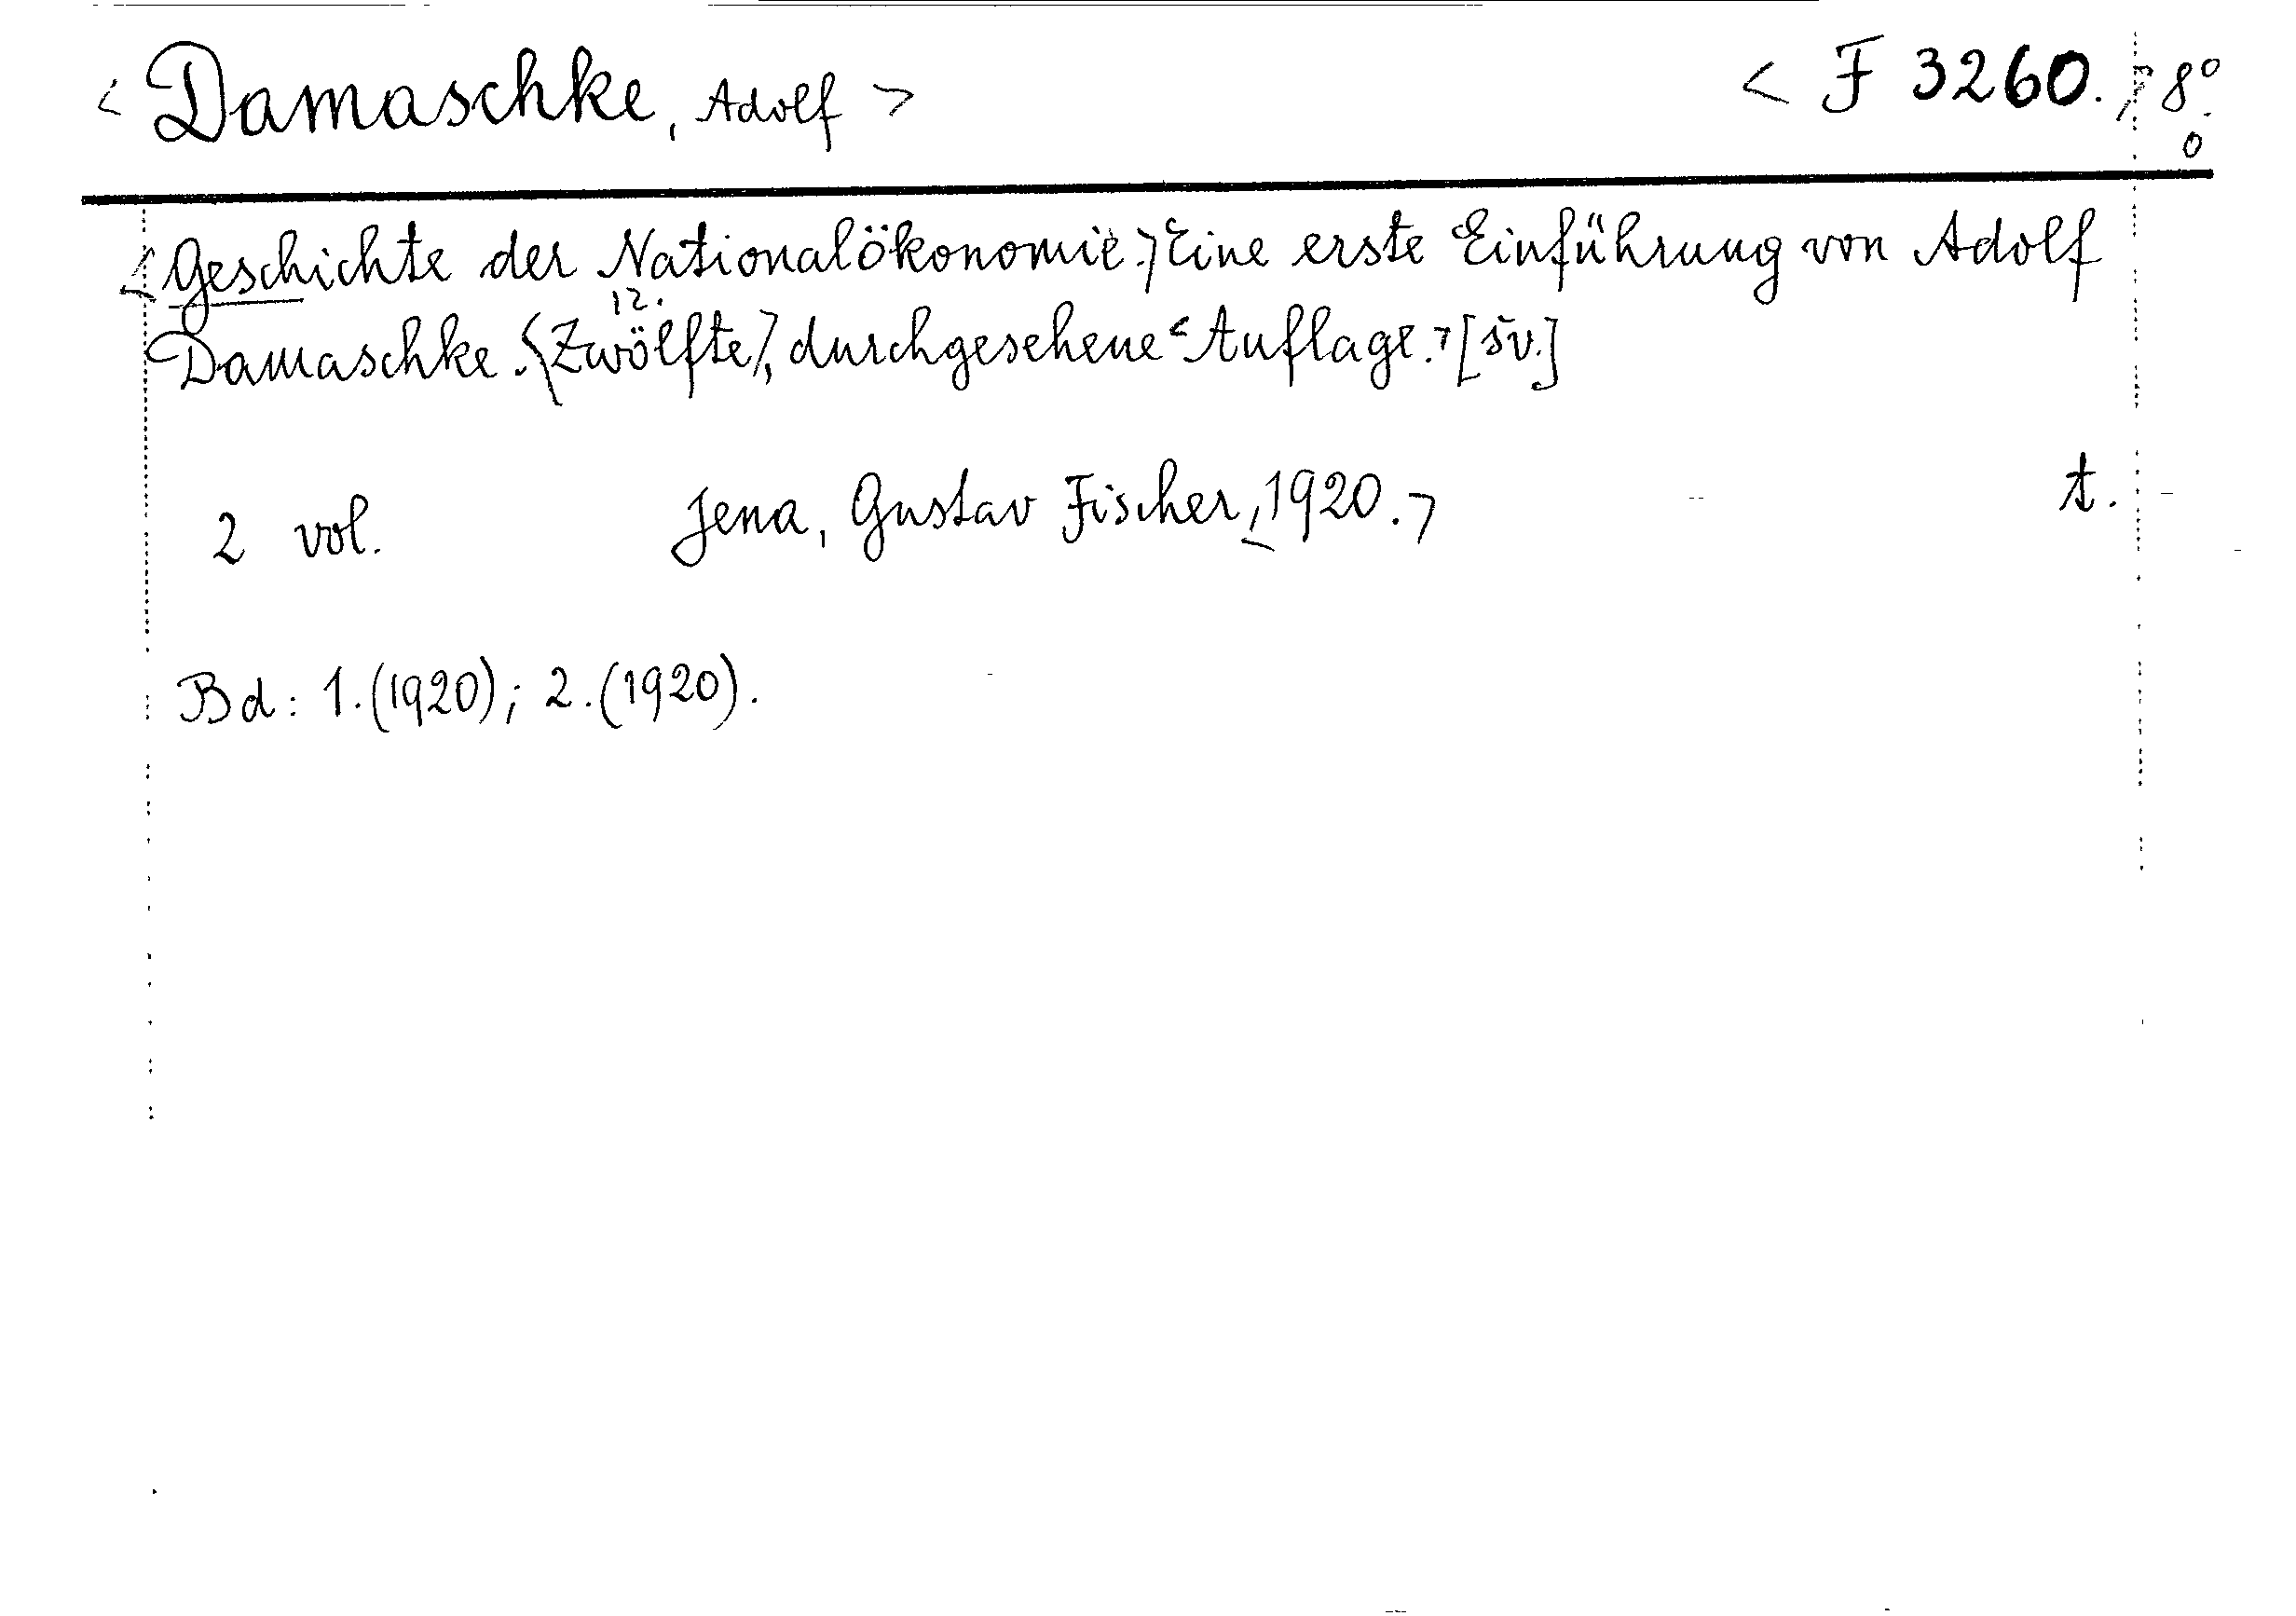 < Damaschke, Adolf > < F 3260. > 8°
0
<Geschichte der Nationalökonomie.> Eine erste Einführung von Adolf
12.
Damaschke. <Zwölfte>, durchgesehene <Auflage.> [šv.]
2 vol. Jena, Gustav Fischer, <1920.> t.
Bd: 1.(1920); 2.(1920).